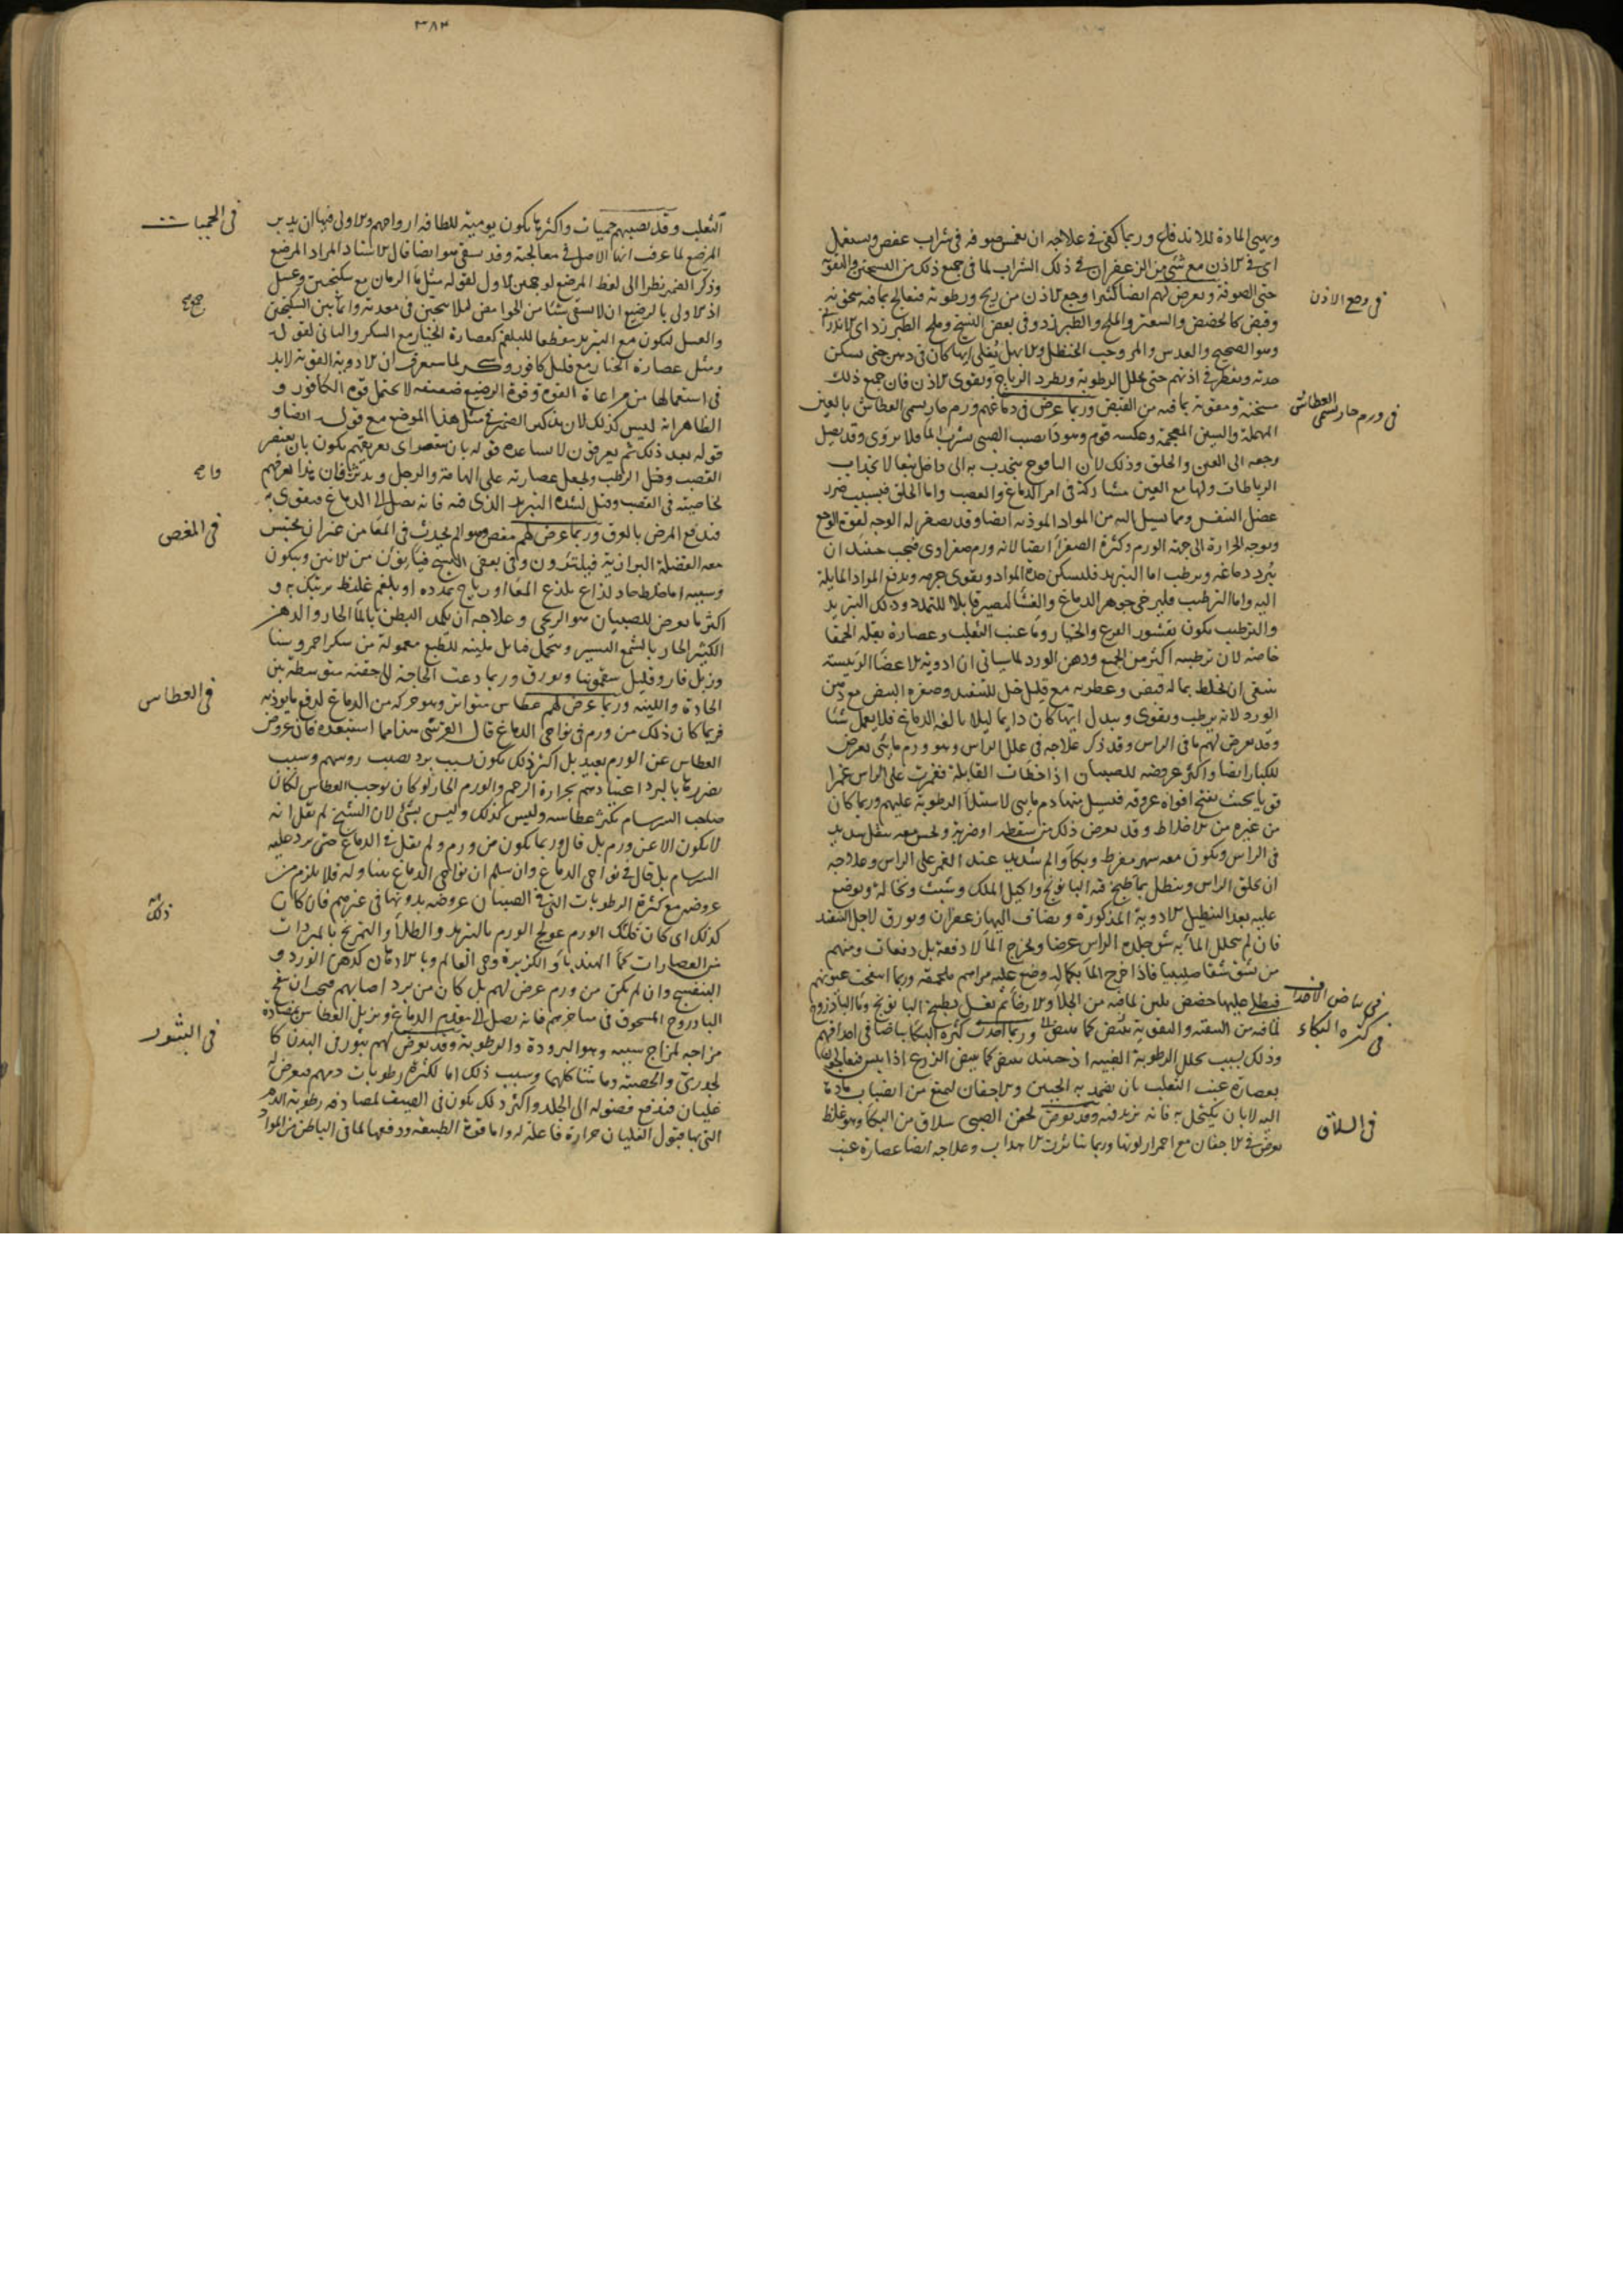 ويهيئ المادة للاندفاع وربما كفى في علاجه ان تغمس صوفة في شراب عفص ويستعمل
اى فى الاذن مع شئ من الزعفران فى ذلك الشراب لما فى جميع ذلك من التسخين والتقوية
فى وجع الاذن
حتى الصوفة ويعرض لهم ايضا كثيرا وجع الاذن من ريح ورطوبة فيعالج بما فيه سخونة
وقبض كالحضض والسعتر والملح الطبرزد وفى بعض النسخ وملح الطبرزد اى
وهو الصحيح والعدس والمر وحب الحنظل والابهل يغلى ايها كان فى دهن حتى يسكن
حدته ويقطر فى اذنهم حتى يحلل الرطوبة ويطرد الرياح ويقوى الاذن فان جميع ذلك
فى ورم حار يسمى العطاش
مسخنة ومقوية بما فيه من القبض وربما عرض فى دماغهم ورم حار يسمى العطاش بالعين
المهملة والشين المعجمة وعكسه قوم وهو داء يصيب الصبى يشرب الماء فلا يروى وقد يصل
وجعه الى العين والحلق وذلك لان اليافوخ ينجذب به الى داخل تبعا لانجذاب
الرباطات ولها مع العين مشاركة فى امر الدماغ والعصب واما الحلق فبسبب
عضل النفس وما يسيل اليه من المواد الموذية ايضا وقد يصفر له الوجه لقوة الوجع
وتوجه الحرارة الى جهة الورم وكثرة الصفراء ايضا لانه ورم صفراوى فيجب حينئذ ان
يبرد دماغه ويرطب اما التبريد فليسكن حدة المواد ويقوى جرمه ويدفع المواد المايلة
اليه واما الترطيب فليرخى جوهر الدماغ والغشاء ليصير قابلا للتمدد وذلك التبريد
والترطيب يكون بقشور القرع والخيار وماء عنب الثعلب وعصارة بقلة الحمقا
خاصة لان ترطيبه اكثر من الجميع ودهن الورد لما سياتى ان ادوية الاعضاء الرئيسة
ينبغى ان يخلط بما له قبض وعطرية مع قليل خل للتنفيذ وصفرة البيض مع دهن
الورد لانه يرطب ويقوى ويبدل ايها كان دايما ليلا يالفه الدماغ فلا يعمل شئا
وقد يعرض لهم ماء فى الراس وقد ذكر علاجه فى علل الراس وهو ورم مائى يعرض
للكبار ايضا واكثر عروضه للصبيان اذا اخطات القابلة فغمزت على الراس غمزا
قويا بحيث يفتح افواه عروقه فيسيل منها دم مائى لاستيلاء الرطوبة عليهم وربما كان
من غيره من الاخلاط وقد يعرض ذلك من سقطة او ضربة ويحس معه بثقل شديد
فى الراس ويكون معه سهر مفرط وبكاء والم شديد عند الغمز على الراس وعلاجه
ان يحلق الراس وينطل بماء طبخ فيه البابونج واكليل الملك وشبت ونخالة ويوضع
عليه بعد التنطيل الادوية المذكورة ويضاف اليها زعفران وبورق لاجل التنفيذ
فان لم يتحلل الماء به شق جلدة الراس عرضا ويخرج الماء لا دفعة بل دفعات ومنهم
من يشق شقا صليبيا فاذا خرج الماء بكماله وضع عليه مراهم ملحمة وربما انتفخت عيونهم
فى بياض الاحداق
فى كثرة البكاء
فيطلى عليها حضض بلبن لما فيه من الجلاء والارخاء ثم تغسل بطبيخ البابونج وماء الباذروج
لما فيه من التنقية والتقوية وربما احدث كثرة البكاء بياضا فى احداقهم
وذلك بسبب تحلل الرطوبة الغريبة اذ حينئذ يبيض كما يبيض الزرع اذا يبس فيعالج
بعصارة عنب الثعلب بان يضمد به الجبين والاجفان ليمنع من انصباب مادة
اليه لا بان يكتحل به فانه يزيد فيه وقد يعرض لجفن الصبى سلاق من البكاء وهو غلظ
فى السلاق
يعرض فى الاجفان مع احمرار لونها وربما تناثرت الاهداب وعلاجه ايضا عصارة عنب
٣٨٣
فى الحميات
الثعلب وقد يصيبهم حميات واكثر ما يكون يومية للطافة ارواحهم والاولى فيها ان يدبر
المرضع لما عرف انها الاصل فى معالجته وقد سقى هو ايضا قال الاستاد المراد المرضع
وذكر الضمير نظرا الى لفظ المرضع لوجهين الاول لقوله مثل ماء الرمان مع سكنجبين وعسل
اذ الاولى بالرضيع ان لا يسقى شئا من الحوامض ليلا يتجبن فى معدته وانما بين السكنجبين
والعسل ليكون مع التبريد مقطعا للبلغم كعصارة الخيار مع السكر والثانى لقوله
ومثل عصارة الخيار مع قليل كافور وسكر لما سيعرف ان الادوية القوية لابد
فى استعمالها من مراعاة القوة وقوة الرضيع ضعيفة لا تحتمل قوة الكافور و
الظاهر انه ليس كذلك لان تذكير الضمير فى مثل هذا الموضع مع قوله ايضا و
قوله بعد ذلك ثم يعرقون لا يساعده قوله بان يتصدى تعريقهم يكون بان يعتصر
القصب الرطب ويجعل عصارته على الهامة والرجل ويدثروا فان هذا يعرقهم
لخاصية فى القصب وقيل لشدة التبريد الذى فيه فانه يصل الى الدماغ فيقوى به
فى المغص
فيدفع المرض بالعرق وربما عرض لهم مغص وهو الم يحدث فى المعاء من غير ان يحتبس
معه الفضلة البرازية فيلتوون وفى بعض النسخ فيانون من الانين ويبكون
وسببه اما خلط حاد لذاع يلذع المعا او رياح تمدده او بلغم غليظ يرتبك به و
اكثر ما يعرض للصبيان هو الريحى وعلاجه ان يكمد البطن بالماء الحار والدهن
الكثير الحار بالشمع اليسير وتحمل فتايل ملينة للطبع معمولة من سكر احمر وسنا
وزبل فار وقليل سقمونيا وبورق وربما دعت الحاجة الى حقنة متوسطة بين
فى العطاس
الحادة واللينة وربما عرض لهم عطاس متواتر وهو حركة من الدماغ لدفع ما يوذيه
فربما كان ذلك من ورم فى نواحى الدماغ قال القرشى هذا مما استبعده فان عروض
العطاس عن الورم بعيد بل اكثر ذلك يكون بسبب برد يصيب روسهم وسبب
تضررها بالبرد اعتيادهم بحرارة الرحم والورم الحار لو كان يوجب العطاس لكان
صاحب السرسام يكثر عطاسه وليس كذلك وليس بشئ لان الشيخ لم يقل انه
لا يكون الا عن ورم بل قال وربما يكون من ورم ولم يقل فى الدماغ حتى يرد عليه
السرسام بل قال فى نواحى الدماغ وان سلم ان نواحى الدماغ يتناوله فلا يلزم من
عروضه مع كثرة الرطوبات التى فى الصبيان عروضه بدونها فى غيرهم فان كان
كذلك اى كان ذلك الورم عولج الورم بالتبريد والطلاء والتمريخ بالمبردات
من العصارات كماء الهندباء والكزبرة وحى العالم وبالادهان كدهن الورد و
البنفسج وان لم يكن من ورم عرض لهم بل كان من برد اصابهم فيجب ان ينفخ
الباذروج المسحوق فى مناخرهم فانه يصل الى مقدم الدماغ ويزيل العطاس بمضادة
فى البثور
مزاجه لمزاج سببه وهو البرودة والرطوبة وقد يعرض لهم بثور فى البدن كا
لجدرى والحصبة وما شاكلهما وسبب ذلك اما لكثرة رطوبات دمهم فيعرض له
غليان فيدفع فضوله الى الجلد واكثر ذلك يكون فى الصيف لمصادفة رطوبة الدم
التى بها قبول الغليان حرارة فاعلة له واما قوة الطبيعة ودفعها لما فى الباطن من المواد